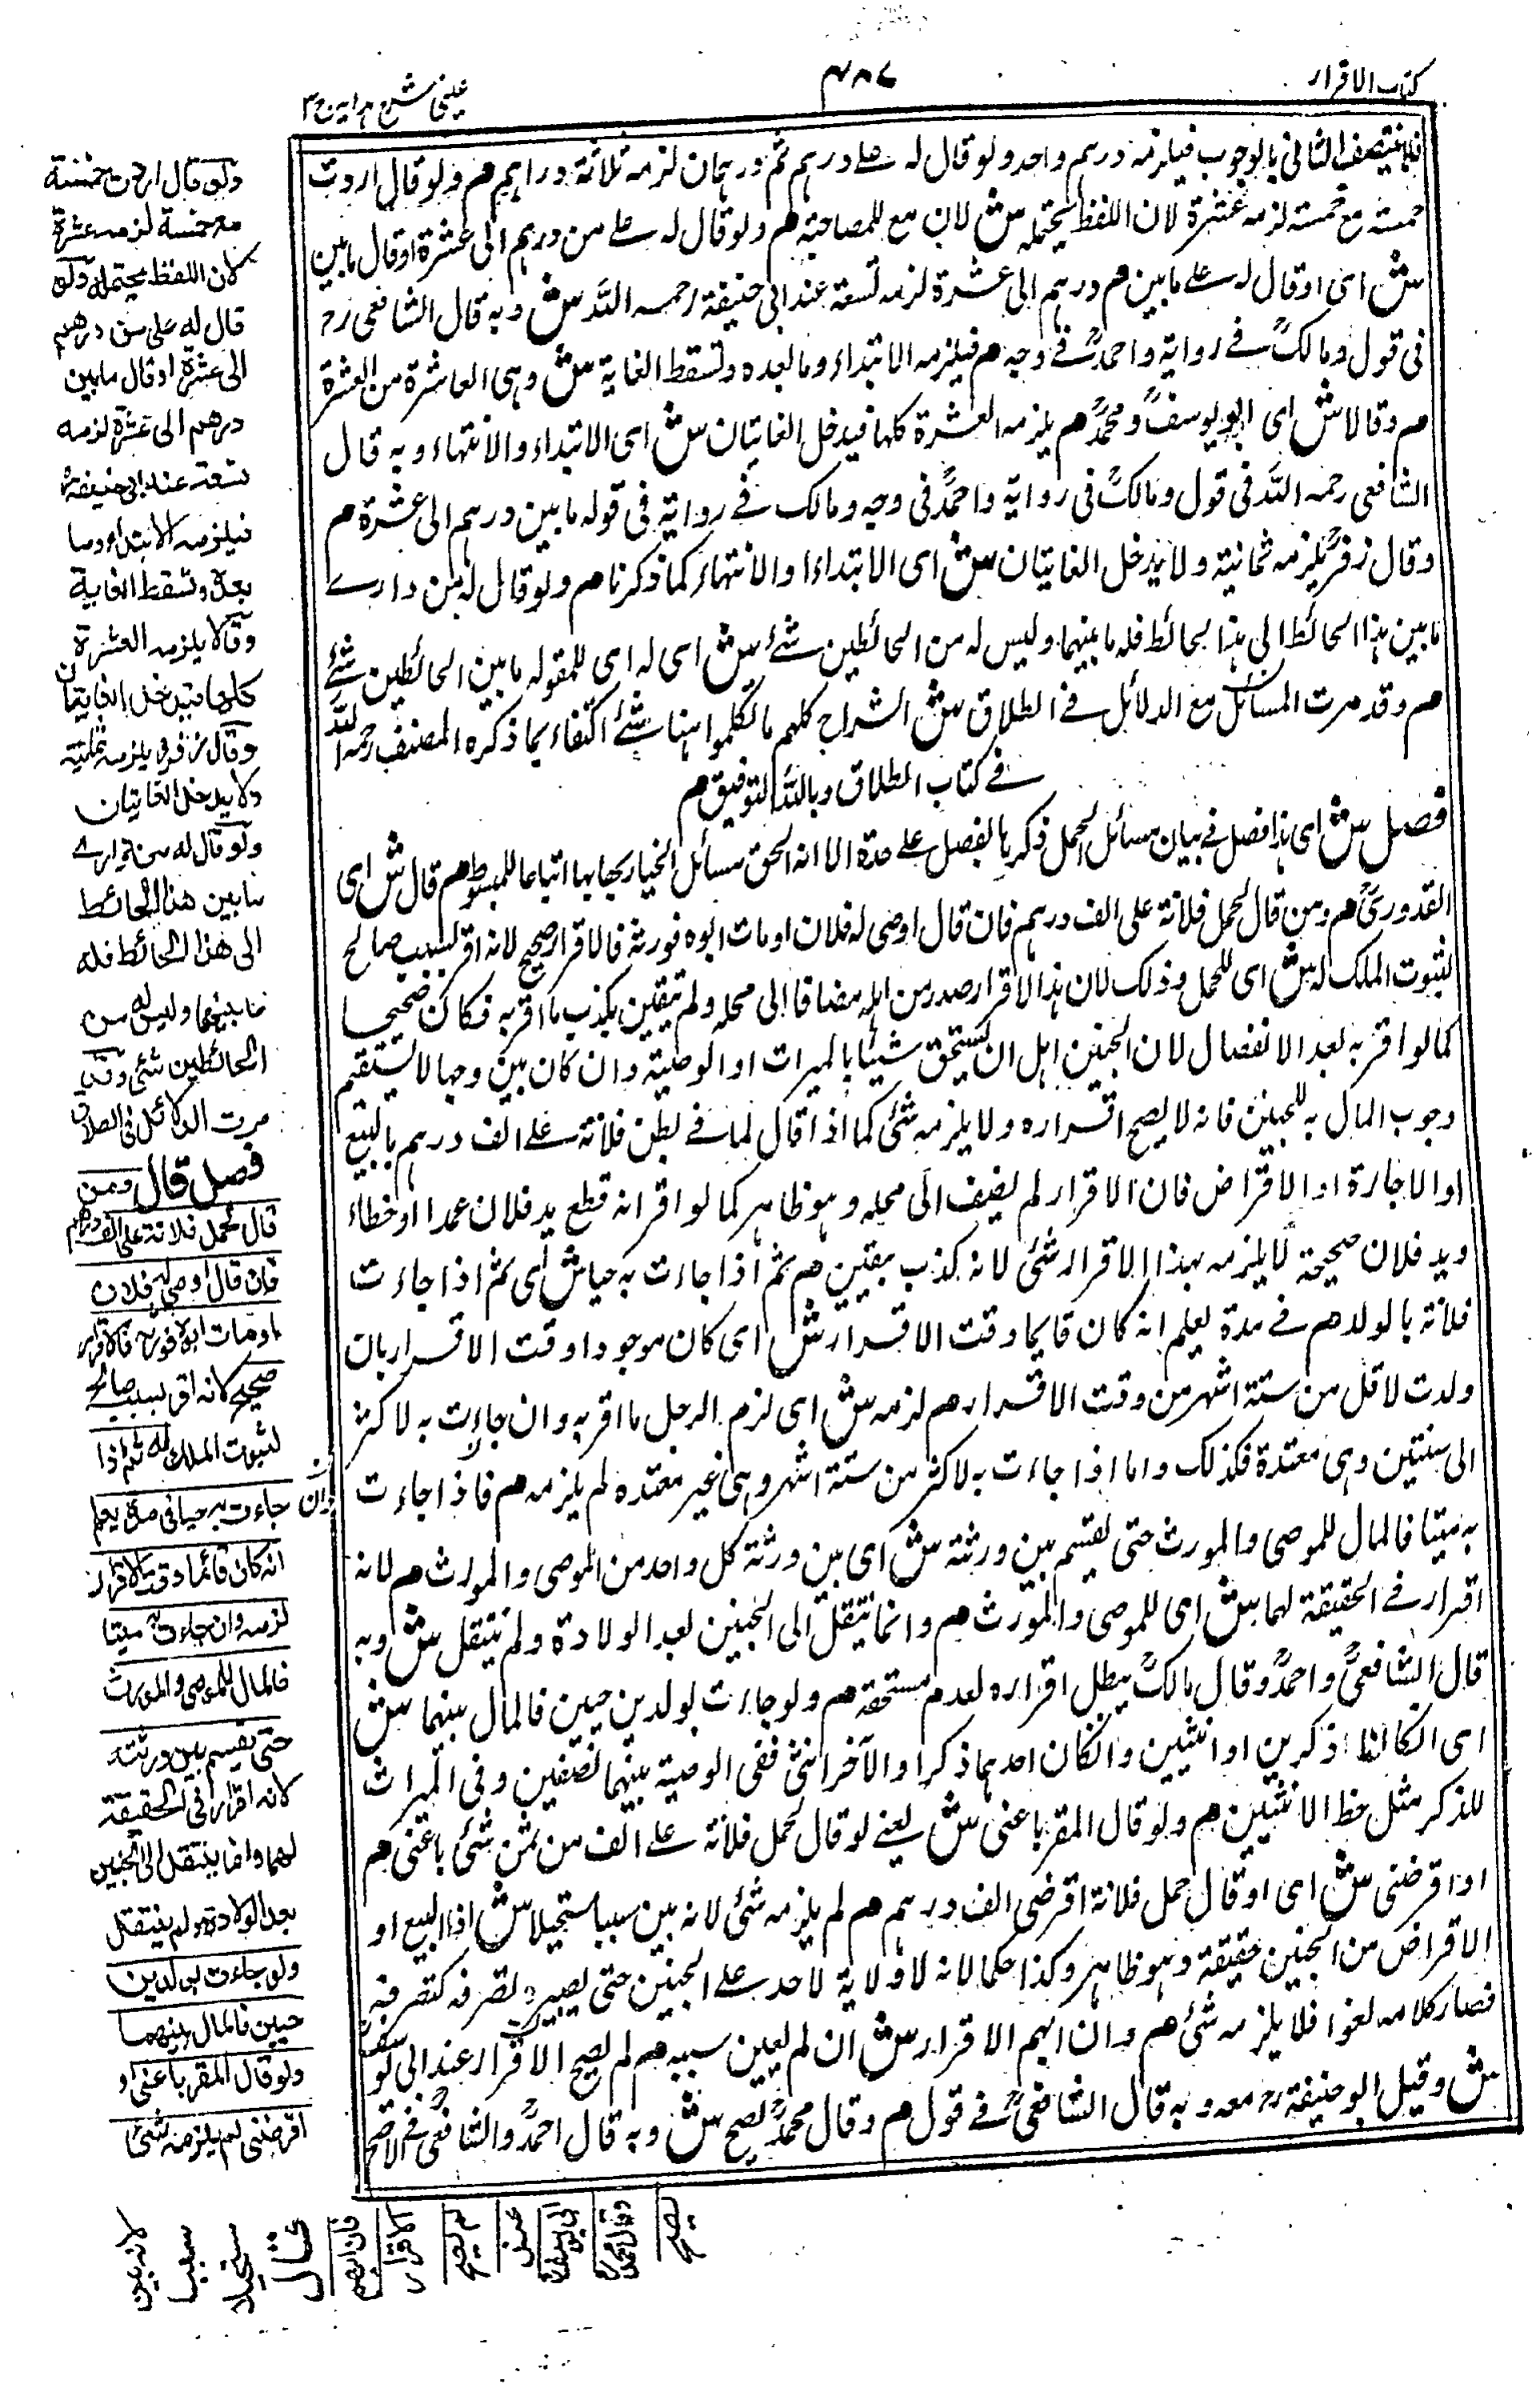 كتاب الاقرار
٤٨٧
عيني شرح هدايه ج ٣
فلا يتصف الثاني بالوجوب فيلزمه درهم واحد ولو قال له علے درهم ثم درهمان لزمه ثلاثة دراهم م ولو قال اردت
خمسة مع خمسة لزمه عشرة لان اللفظ يحتمله ش لان مع للمصاحبة م ولو قال له علے من درهم الى عشرة او قال ما بين
ش اى او قال له علے ما بين م درهم الى عشرة لزمه تسعة عند ابى حنيفة رحمه الله ش وبه قال الشافعى رح
فى قول ومالكؒ فے رواية واحمدؒ فے وجه م فيلزمه الابتداء وما بعده وتسقط الغاية ش وهى العاشرة من العشرة
م وقالا ش اى ابو يوسفؒ ومحمدؒ م يلزمه العشرة كلها فيدخل الغايتان ش اى الابتداء والانتهاء وبه قال
الشافعى رحمه الله فى قول ومالكؒ فى رواية واحمدؒ فى وجه ومالك فے رواية فى قوله ما بين درهم الى عشرة م
وقال زفرؒ يلزمه ثمانية ولا يدخل الغايتان ش اى الابتداء والانتهاء كما ذكرنا م ولو قال له من دارے
ما بين هذا الحائط الى هذا الحائط فله ما بينهما وليس له من الحائطين شئ ش اى له اى للمقوله ما بين الحائطين شئ
م وقد مرت المسائل مع الدلائل فے الطلاق ش الشراح كلهم ما تكلموا هنا شئ اكتفاء بما ذكره المصنف رحمه الله
فے كتاب الطلاق وبالله التوفيق م
فصل ش اى هذا فصل فے بيان مسائل الحمل ذكرها بالفصل علے حدة الا انه الحق مسائل الخيار بها اتباعا للمبسوط م قال ش اى
القدورىؒ م ومن قال لحمل فلانة على الف درهم فان قال اوصى له فلان او مات ابوه فورثه فالاقرار صحيح لانه اقر بسبب صالح
لثبوت الملك له ش اى للحمل وذلك لان هذا الاقرار صدر من اهله مضافا الى محله ولم يتيقن بكذب ما اقر به فكان صحيحا
كما لو اقر به بعد الانفصال لان الجنين اهل ان يستحق شيئا بالميراث او الوصية وان كان بين وجها لا يستقيم
وجوب المال به للجنين فانه لا يصح اقراره ولا يلزمه شئ كما اذا قال لما فے بطن فلانة علے الف درهم بالبيع
او الاجارة او الاقراض فان الاقرار لم يضف الى محله وهو ظاهر كما لو اقر انه قطع يد فلان عمدا او خطاء
ويد فلان صحيحة لا يلزمه بهذا الاقرار شئ لانه كذب بيقين م ثم اذا جاءت به حيا ش اى ثم اذا جاءت
فلانة بالولد م فے مدة يعلم انه كان قايما وقت الاقرار ش اى كان موجودا وقت الاقرار بان
ولدت لاقل من ستة اشهر من وقت الاقرار م لزمه ش اى لزم الرجل ما اقر به وان جاءت به لاكثر
الى سنتين وهى معتدة فكذلك واما اذا جاءت به لاكثر من ستة اشهر وهى غير معتده لم يلزمه م فاذا جاءت
به ميتا فالمال للموصى والمورث حتى يقسم بين ورثته ش اى بين ورثة كل واحد من الموصى والمورث م لانه
اقرار فے الحقيقة لهما ش اى للموصى والمورث م وانما ينتقل الى الجنين بعد الولادة ولم ينتقل ش وبه
قال الشافعىؒ واحمدؒ وقال مالكؒ يبطل اقراره لعدم مستحقه م ولو جاءت بولدين حيين فالمال بينهما ش
اى ان كانا ذكرين او انثيين وان كان احدهما ذكرا والآخر انثى ففى الوصية بينهما نصفين وفى الميراث
للذكر مثل حظ الانثيين م ولو قال المقر باعنى ش يعنے لو قال لحمل فلانة علے الف من ثمن شئ باعنى م
او اقرضنى ش اى او قال حمل فلانة اقرضى الف درهم م لم يلزمه شئ لانه بين سببا مستحيلا ش اذ البيع او
الاقراض من الجنين حقيقة وهو ظاهر وكذا حكما لانه لا ولاية لاحد علے الجنين حتى يصير تصرفه كتصرفه
فصار كلامه لغوا فلا يلزمه شئ م وان ابهم الاقرار ش ان لم يعين سببه م لم يصح الاقرار عند ابى يوسفؒ
ش وقيل ابو حنيفة رح معه وبه قال الشافعىؒ فے قول م وقال محمدؒ يصح ش وبه قال احمدؒ والشافعىؒ فے الاصح
ولو قال اردت خمسة
مع خمسة لزمه عشرة
لان اللفظ يحتمله ولو
قال له على من درهم
الى عشرة او قال ما بين
درهم الى عشرة لزمه
تسعة عند ابى حنيفةؒ
فيلزمه الابتداء وما
بعده وتسقط الغاية
وقالا يلزمه العشرة
كلها فيدخل الغايتان
وقال زفرؒ يلزمه ثمانية
ولا يدخل الغايتان
ولو قال له من دارے
ما بين هذا الحائط
الى هذا الحائط فله
ما بينهما وليس له من
الحائطين شئ وقد
مرت الدلائل فى الطلاق
فصل قال ومن
قال لحمل فلانة على الف درهم
فان قال اوصى له فلان
او مات ابوه فورثه فالاقرار
صحيح لانه اقر بسبب صالح
لثبوت الملك له ثم اذا
جاءت به حيا فى مدة يعلم
انه كان قائما وقت الاقرار
لزمه وان جاءت به ميتا
فالمال للموصى والمورث
حتى يقسم بين ورثته
لانه اقرار فى الحقيقة
لهما وانما ينتقل الى الجنين
بعد الولادة ولم ينتقل
ولو جاءت بولدين
حيين فالمال بينهما
ولو قال المقر باعنى او
اقرضنى لم يلزمه شئ
لانه بين
سببا
مستحيلا
قال
فان ابهم
الاقرار
لم يصح
عند
ابى يوسفؒ
وقال محمدؒ
يصح